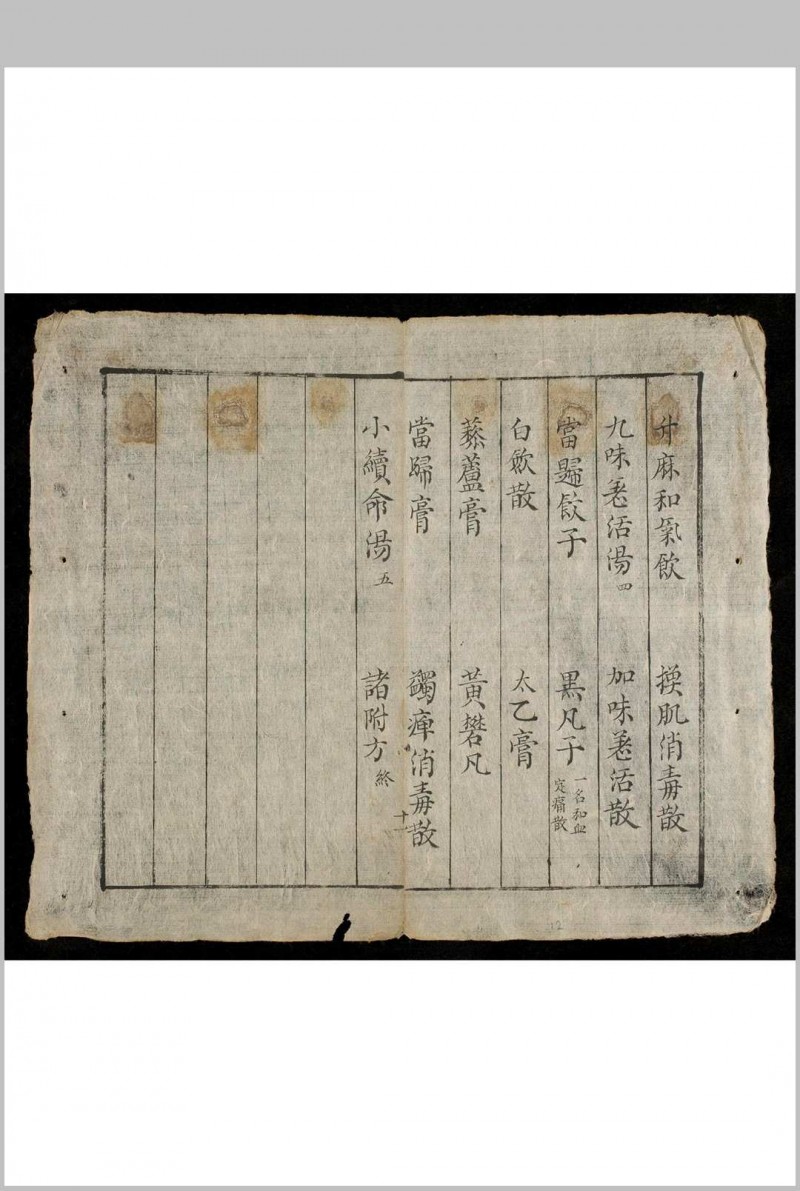 升麻和氣飲 換肌消毒散
九味羌活湯 四 加味羌活散
當歸飲子 黑丸子 一名和血定痛散
白歛散 太乙膏
藜蘆膏 黃礬丸
當歸膏 蠲痺消毒散
十一
小續命湯 五 諸附方 終
12